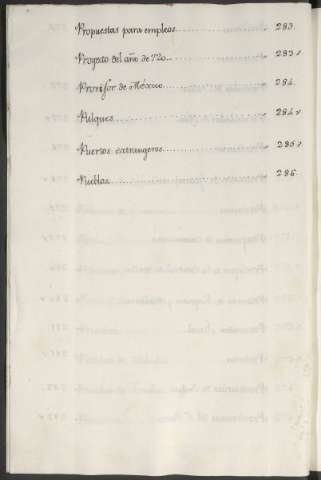 Propuestas para empleos. 283.
Proyecto del año de 720. 283 v
Provisor de México. 284.
Pulques. 284 v
Puertos extrangeros. 285 v
Puebla. 286.